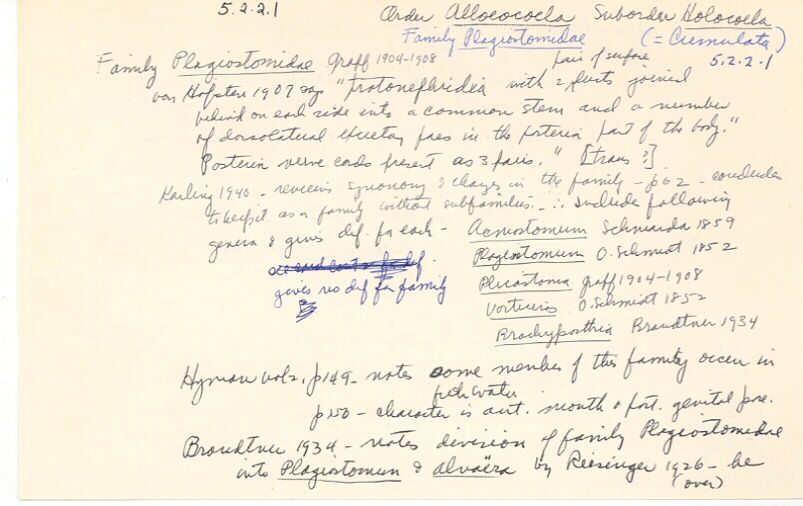 5.2.2.1
Order Alloeocoela Suborder Holocoela
Family Plagiostomidae (= Cumulata)
5.2.2.1
Family Plagiostomidae Graff 1904-1908
von Hofsten 1907 says "Protonephridia with 2 ducts joined
behind on each side into a common stem and a number
of dorsolateral excretory pores in the posterior part of the body."
Posterior nerve cords present as 3 pairs." [trans ?]
Karling 1940 - reviews synonomy & changes in the family - p62 - concludes
to keep it as a family without subfamilies. ∴ include following
genera & gives def. for each - Acmostomum Schmarda 1859
Plagiostomum O. Schmidt 1852
gives no def for family Plicastoma Graff 1904-1908
Vorticeros O. Schmidt 1852
Brachyposthia Brandtner 1934
Hyman vol 2, p149 - notes some member of this family occur in
fresh water
p150 - character is ant. mouth & post. genital pore.
Brandtner 1934 - notes division of family Plagiostomidae
into Plagiostomum & alvaëra by Reisinger 1926 - he
(over)